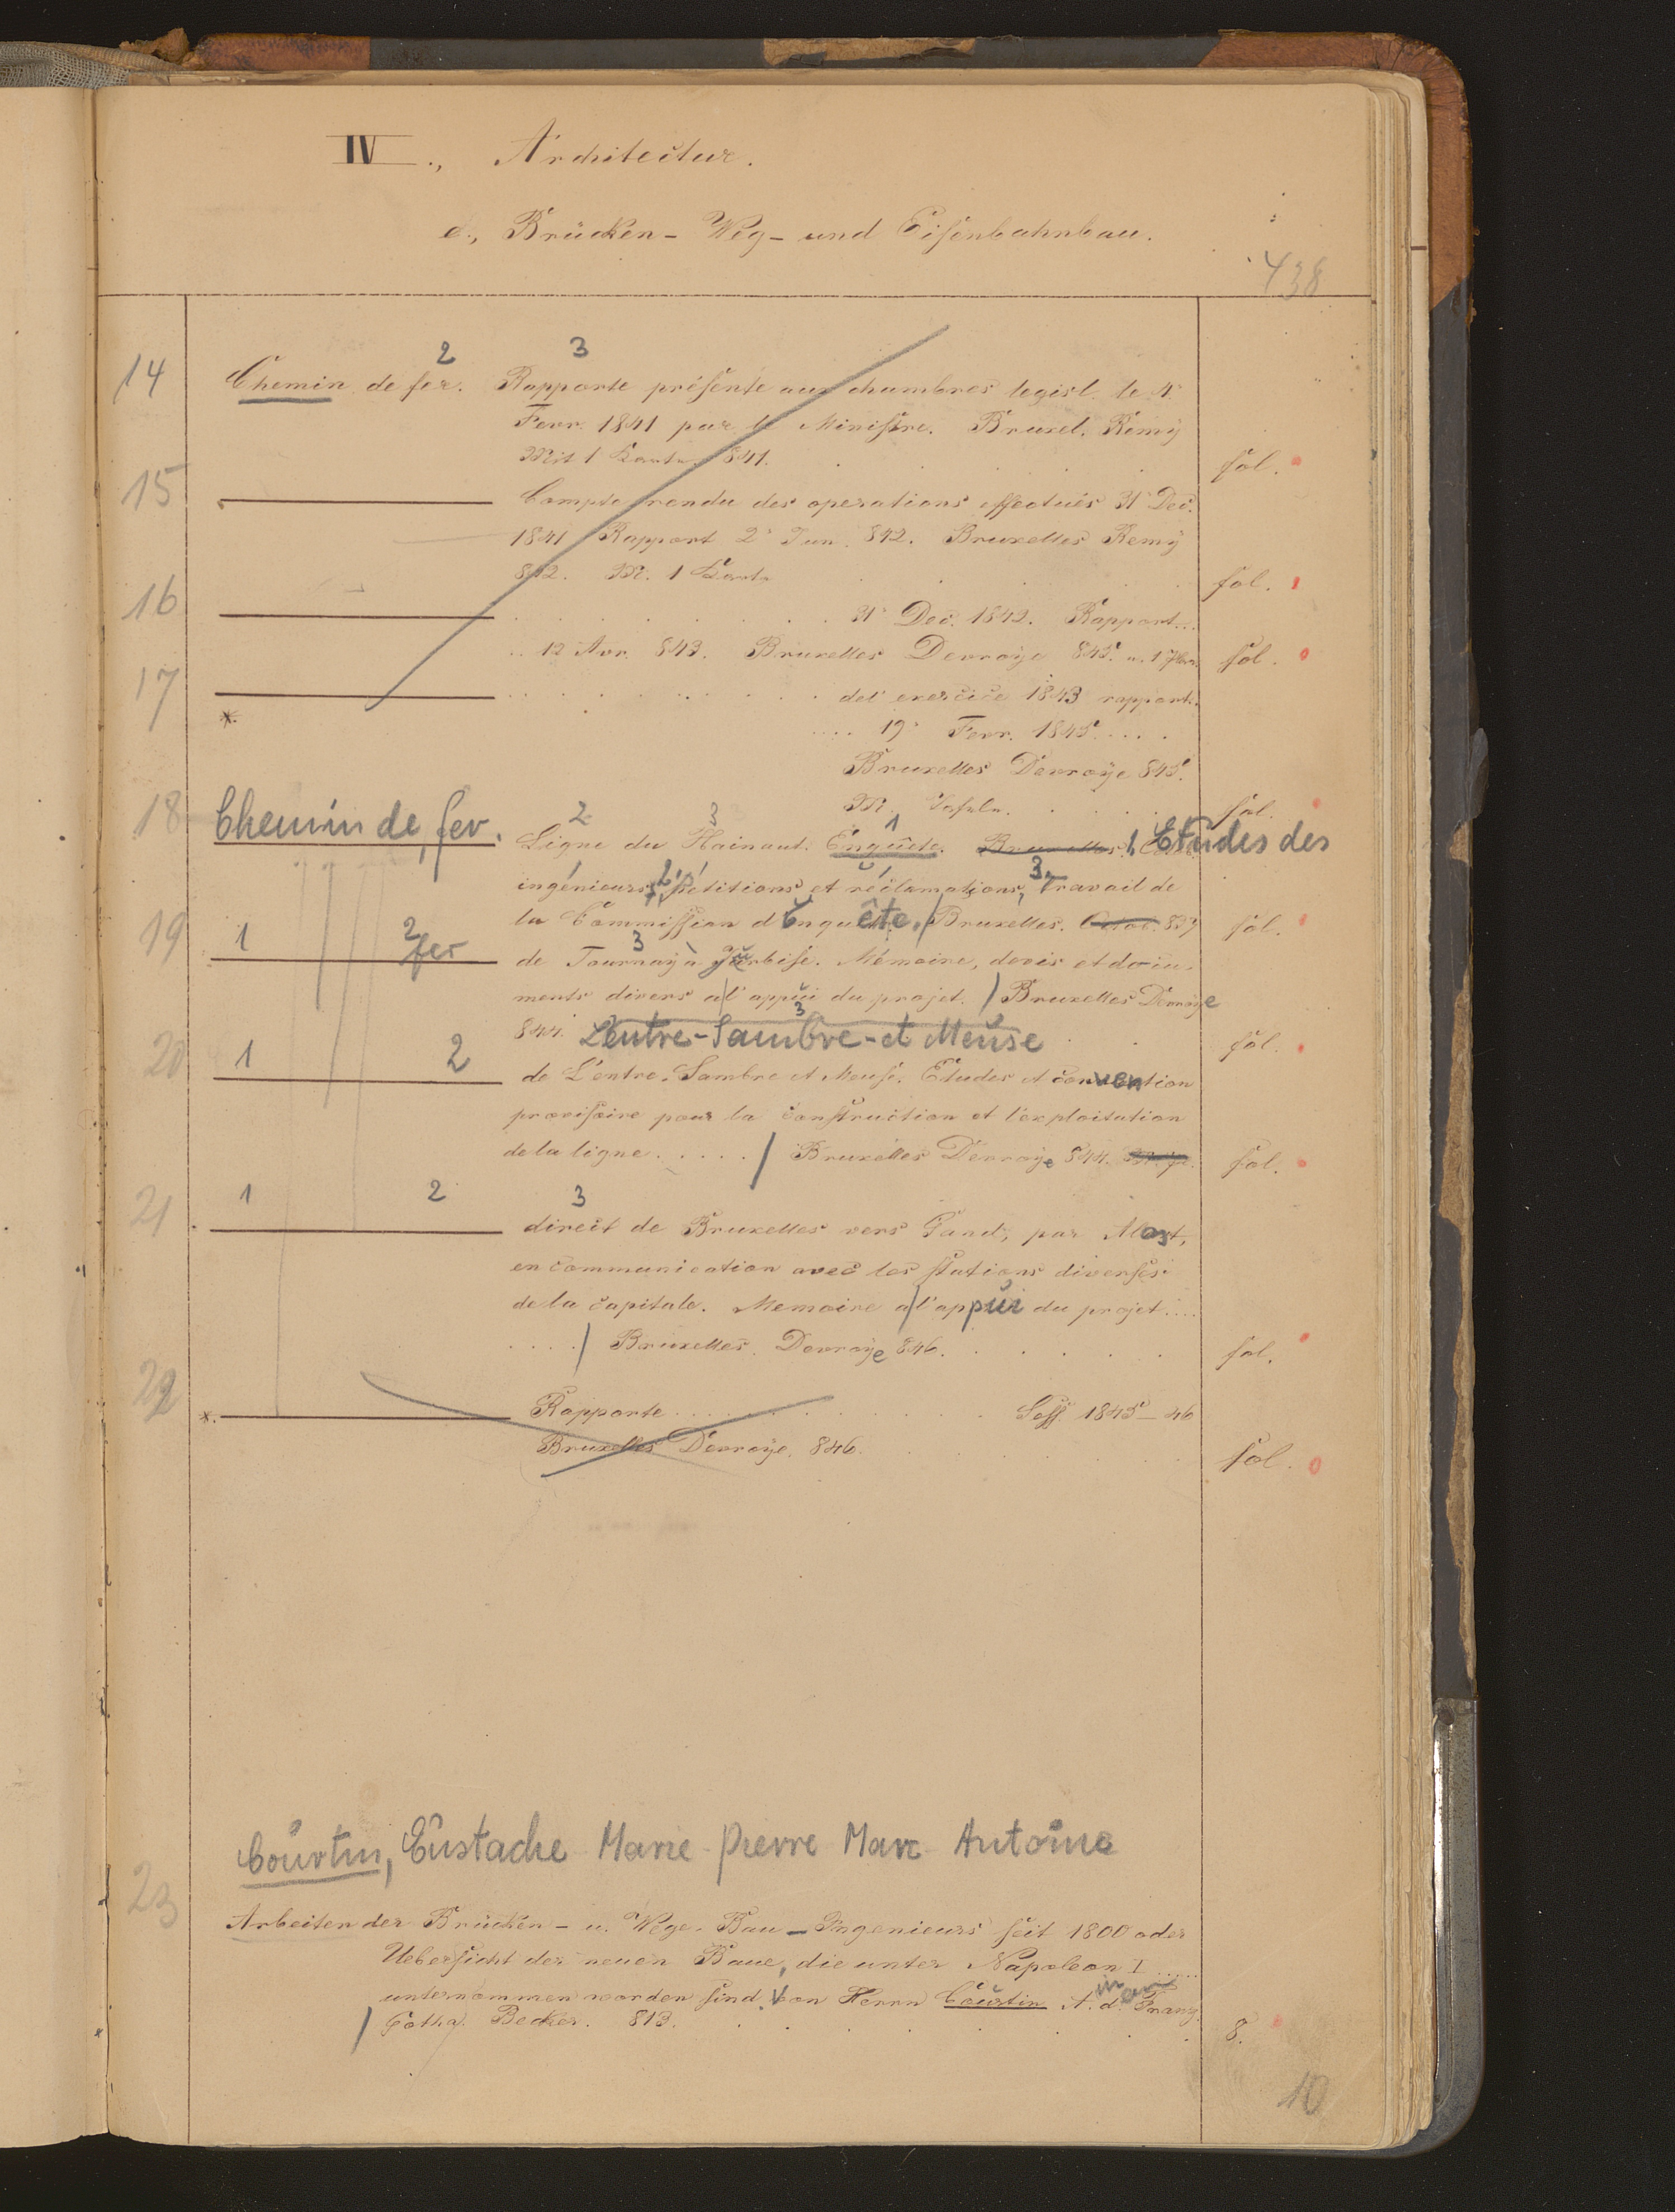 IV., Architectur.
e., Brücken- Weg- und Eisenbahnbau.
438
2 3
14 Chemin de fer. Rapporte présenté aux chambres legisl. le 4.
Fevr. 1841 par le Ministre. Bruxel. Remy
Mit 1 Karte. 841. fol.
15 Compte rendu des operations effectués 31 Dec.
1841 Rapport 2. Jun. 842. Bruxelles Remy
842. M. 1 Karte fol.
16 31. Dec. 1842. Rapport...
.. 12 Avr. 843. Bruxelles Devroye 843. fol.
17 del' exercice 1843 rapport.
*
.... 19. Fevr. 1845. ....
Bruxelles Devroye 845.
M. Tafeln. fol.
2 3 1
18 Chemin de fer. Ligne du Hainaut. Enquête. Bruxelles, Etudes des
2 3
ingénieurs, Pétitions et réclamations, Travail de
la Commission d'Enquête. / Bruxelles. 839 fol.
19 1 2 fer 3
de Tournay à Jurbise. Mémoire, devis et docu-
ments divers a/l'appui du projet. / Bruxelles Devroye
3
844. L'entre-Sambre-et Meuse fol.
20 1 2
de L'entre-Sambre et Meuse. Etudes et convention
provisoire pour la construction et l'exploitation
de la ligne ..... / Bruxelles Devroye 844. fol.
21 1 2 3
direct de Bruxelles vers Gand, par Alost,
en communication avec les stations diverses
de la capitale. Memoire a/l'appui du projet ....
..../ Bruxelles. Devroye 846. fol.
22 *. Rapporte Sess 1845-46
Bruxelles Devroye. 846. fol.
Courtin, Eustache Marie Pierre Marc Antoine
23
Arbeiten der Brücken- u. Wege-Bau-Ingenieurs seit 1800 oder
Uebersicht der neuen Baue, die unter Napoleon I .....
unternommen worden sind. Von Herrn Courtin A. d. Franz.
/ Gotha. Becker. 813. 8.
10